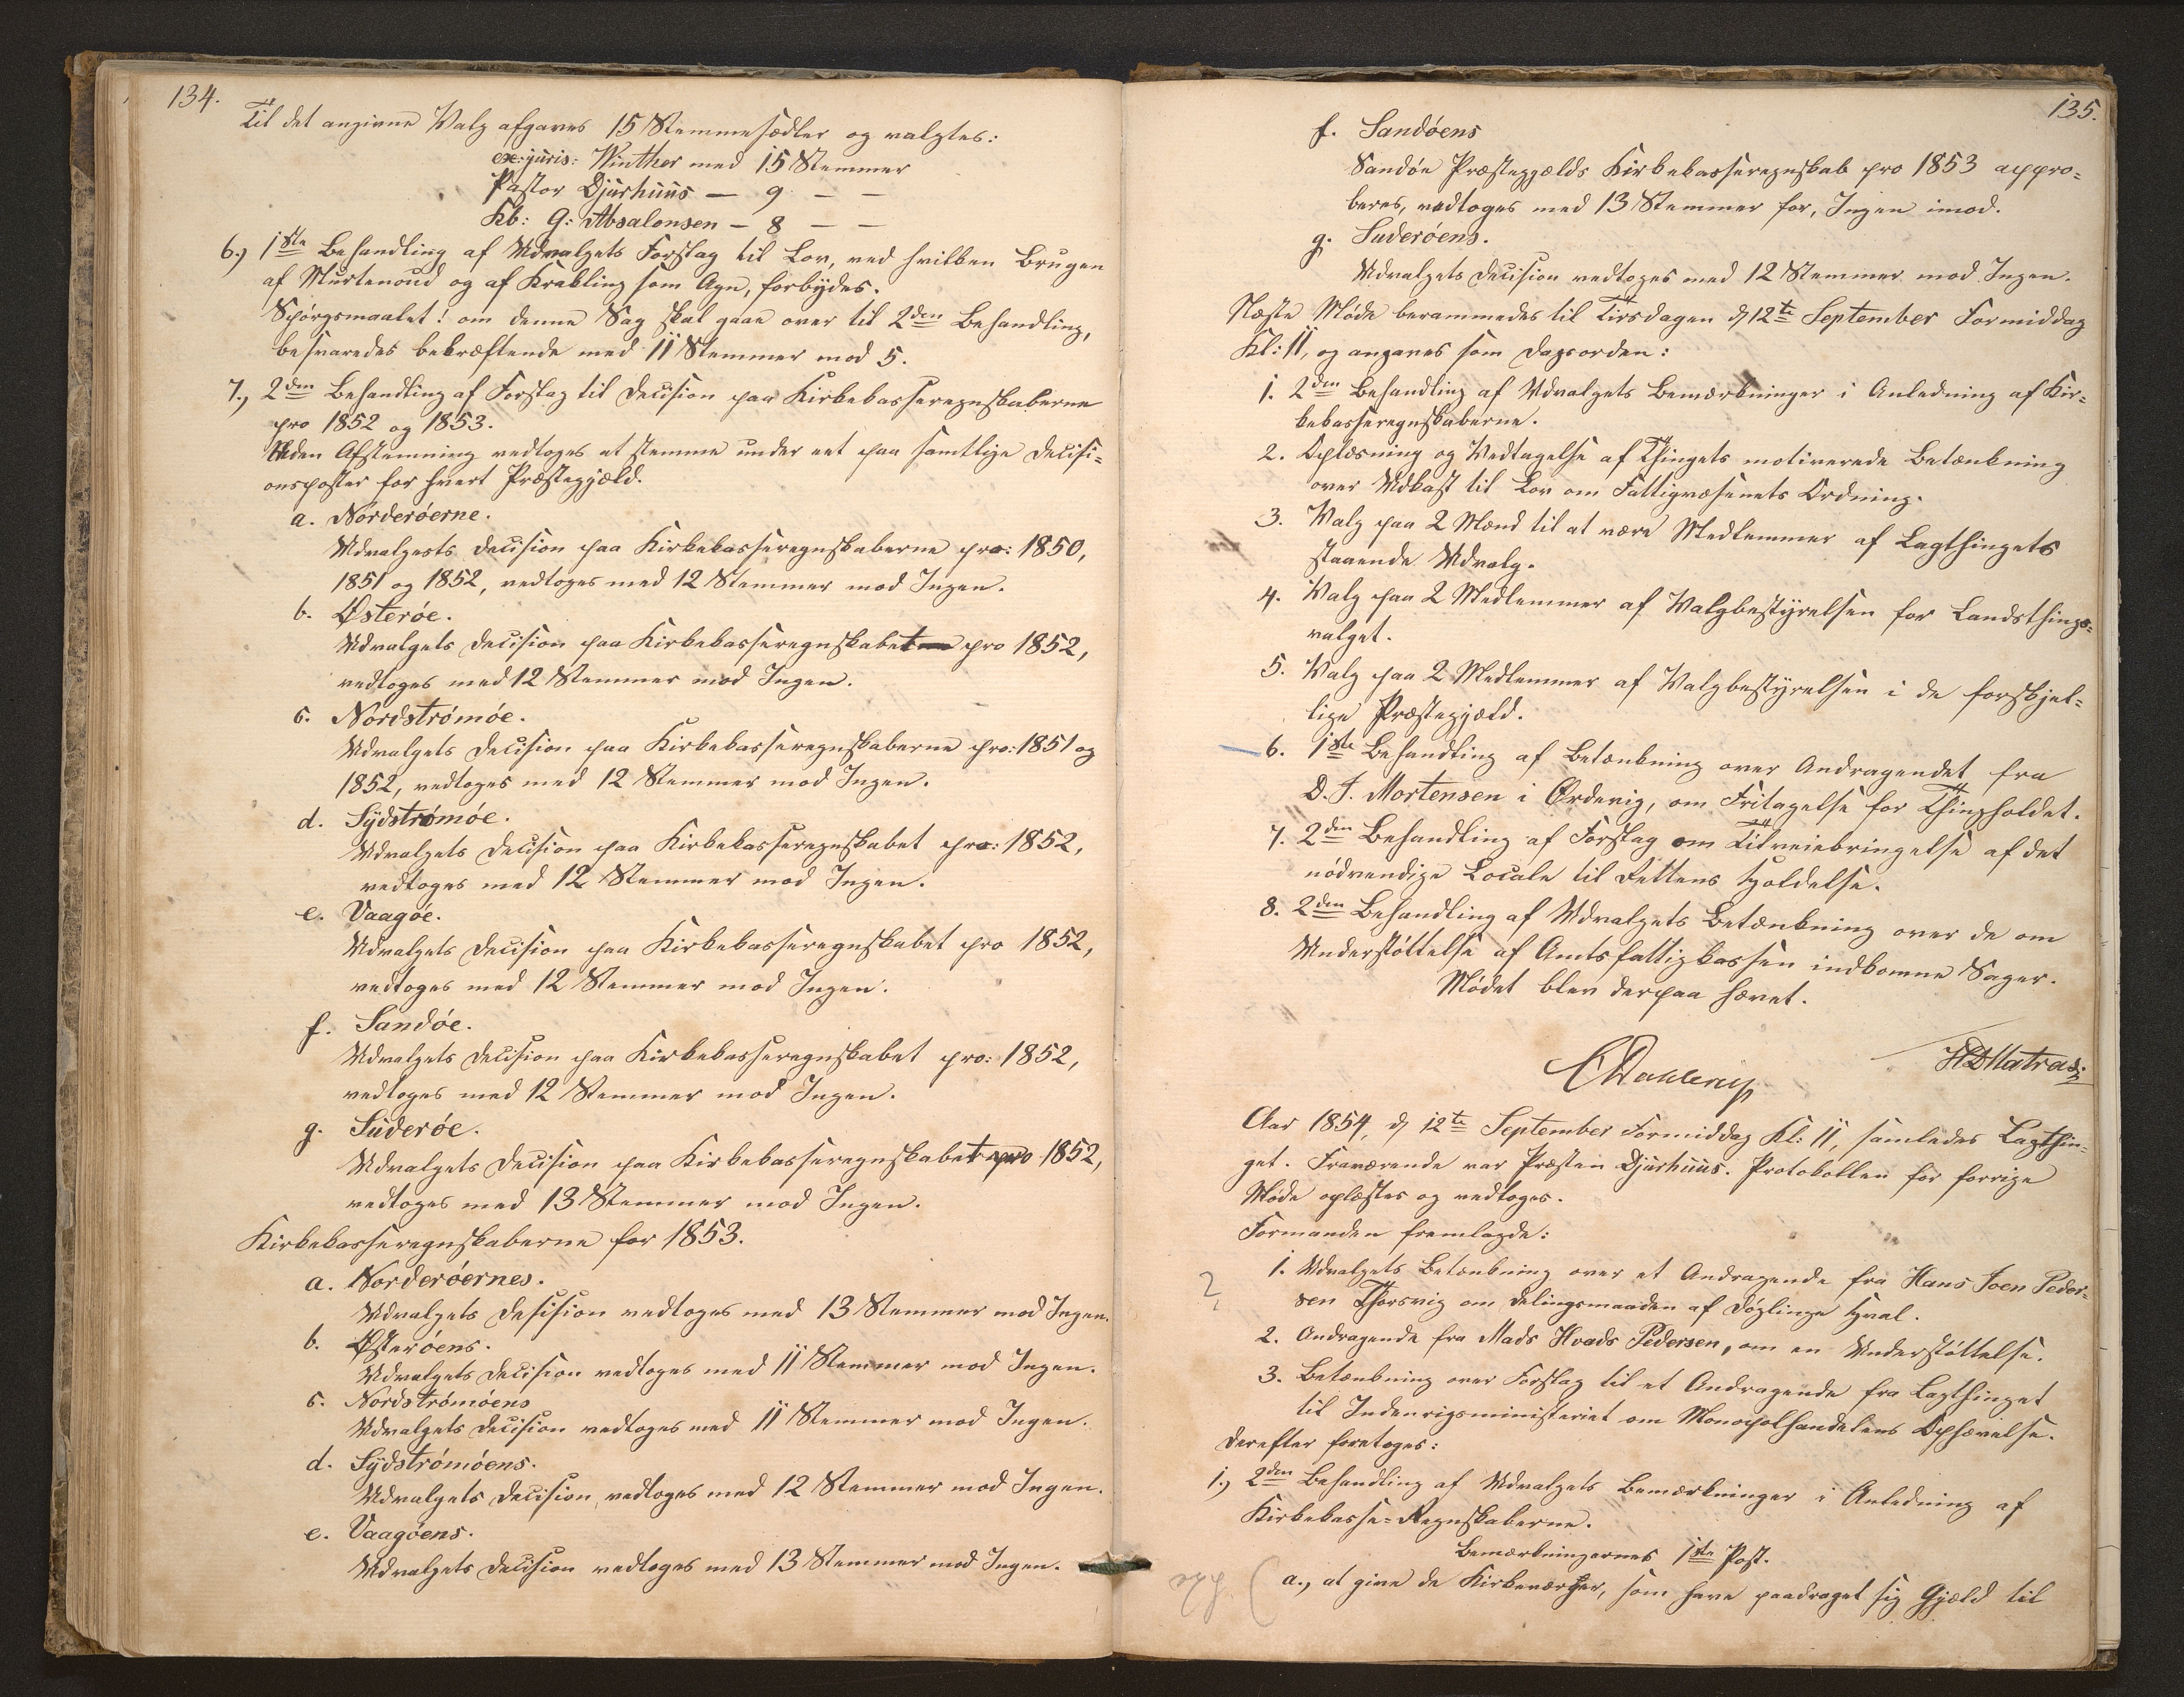 134.
Til det angivne Valg afgaves 15 Stemmesedler og valgtes:
ex: juris: Winther med 15 Stemmer
Pastor Djurhuus — 9 — —
Kb: G: Absalonsen — 8 — —
6.) 1ste Behandling af Udvalgets Forslag til Lov, ved hvilken Brugen
af Murtenoud og af Krækling som Agn, forbydes.
Spørgsmaalet: om denne Sag skal gaae over til 2den Behandling,
besvaredes bekræftende med 11 Stemmer mod 5.
7.) 2den Behandling af Forslag til Decision paa Kirkekasseregnskaberne
pro 1852 og 1853.
Uden Afstemning vedtoges at stemme under eet paa samtlige Decisi=
onsposter for hvert Præstegjæld.
a. Norderøerne.
Udvalgets Decision paa Kirkekasseregnskaberne pro: 1850,
1851 og 1852, vedtoges med 12 Stemmer mod Ingen.
b. Østerøe.
Udvalgets Decision paa Kirkekasseregnskabet pro 1852,
vedtoges med 12 Stemmer mod Ingen.
c. Nordstrømøe.
Udvalgets Decision paa Kirkekasseregnskaberne pro: 1851 og
1852, vedtoges med 12 Stemmer mod Ingen.
d. Sydstrømøe.
Udvalgets Decision paa Kirkekasseregnskabet pro: 1852,
vedtoges med 12 Stemmer mod Ingen.
e. Vaagøe.
Udvalgets Decision paa Kirkekasseregnskabet pro 1852,
vedtoges med 12 Stemmer mod Ingen.
f. Sandøe.
Udvalgets Decision paa Kirkekasseregnskabet pro: 1852,
vedtoges med 12 Stemmer mod Ingen.
g. Suderøe.
Udvalgets Decision paa Kirkekasseregnskabet pro 1852,
vedtoges med 13 Stemmer mod Ingen.
Kirkekasseregnskaberne for 1853.
a. Norderøernes.
Udvalgets Desision vedtoges med 13 Stemmer mod Ingen.
b. Østerøens.
Udvalgets Decision vedtoges med 11 Stemmer mod Ingen.
c. Nordstrømøens
Udvalgets Decision vedtoges med 11 Stemmer mod Ingen.
d. Sydstrømøens.
Udvalgets Decision, vedtoges med 12 Stemmer mod Ingen.
e. Vaagøens.
Udvalgets Decision vedtoges med 13 Stemmer mod Ingen.
135.
f. Sandøens
Sandøe Præstegjælds Kirkekasseregnskab pro 1853 appro=
beres, vedtoges med 13 Stemmer for, Ingen imod.
g. Suderøens.
Udvalgets Decision vedtoges med 12 Stemmer mod Ingen.
Næste Møde berammedes til Tirsdagen d. 12te September Formiddag
Kl: 11, og angaves som Dagsorden:
1. 2den Behandling af Udvalgets Bemærkninger i Anledning af Kir=
kekasseregnskaberne.
2. Oplæsning og Vedtagelse af Thingets motiverede Betænkning
over Udkast til Lov om Fattigvæsenets Ordning.
3. Valg paa 2 Mænd til at være Medlemmer af Lagthingets
staaende Udvalg.
4. Valg paa 2 Medlemmer af Valgbestyrelsen for Landsthings=
valget.
5. Valg paa 2 Medlemmer af Valgbestyrelsen i de forskjel=
lige Præstegjæld.
6. 1ste Behandling af Betænkning over Andragendet fra
D. J. Mortensen i Ørdevig, om Fritagelse for Thingholdet.
7. 2den Behandling af Forslag om Tilveiebringelse af det
nødvendige Locale til Rettens Holdelse.
8. 2den Behandling af Udvalgets Betænkning over de om
Understøttelse af Amtsfattigkassen indkomne Sager.
Mødet blev derpaa hævet.
CDahlerup
HDMatras
Aar 1854, d. 12te September Formiddag Kl: 11, samledes Lagthin=
get. Fraværende var Præsten Djurhuus. Protokollen for forrige
Møde oplæstes og vedtoges.
Formanden fremlagde:
1. Udvalgets Betænkning over et Andragende fra Hans Joen Peder=
sen Thorsvig om Delingsmaaden af Døglinge Hval.
2. Andragende fra Mads Hvads Pedersen, om en Understøttelse.
3. Betænkning over Forslag til et Andragende fra Lagthinget
til Indenrigsministeriet om Monopolhandelens Ophævelse.
Derefter foretoges:
1.) 2den Behandling af Udvalgets Bemærkninger i Anledning af
Kirkekasse=Regnskaberne.
Bemærkningernes 1ste Post.
a., at give de Kirkeværger, som have paadraget sig Gjæld til